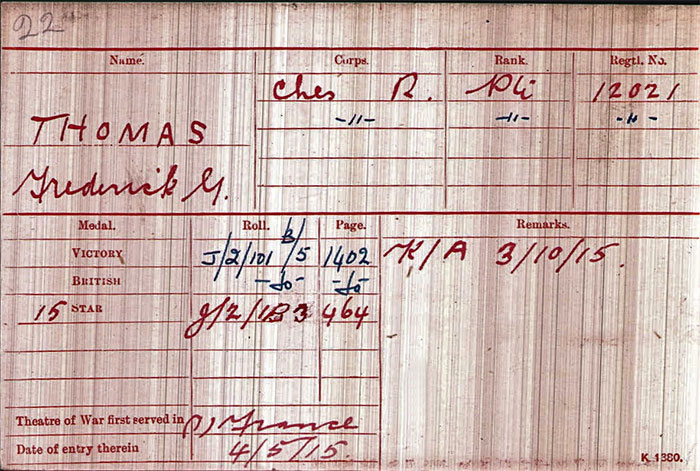 22
Name. Corps. Rank. Regtl. No.
Ches R. Pte 12021
THOMAS -"- -"- -"-
Frederick G.
Medal. Roll. Page. Remarks.
VICTORY J/2/101 B/5 1402 K/A 3/10/15.
BRITISH -do- -do-
15 STAR J/2/1B3 464
Theatre of War first served in (1) France
Date of entry therein 4/5/15.
K 1380.